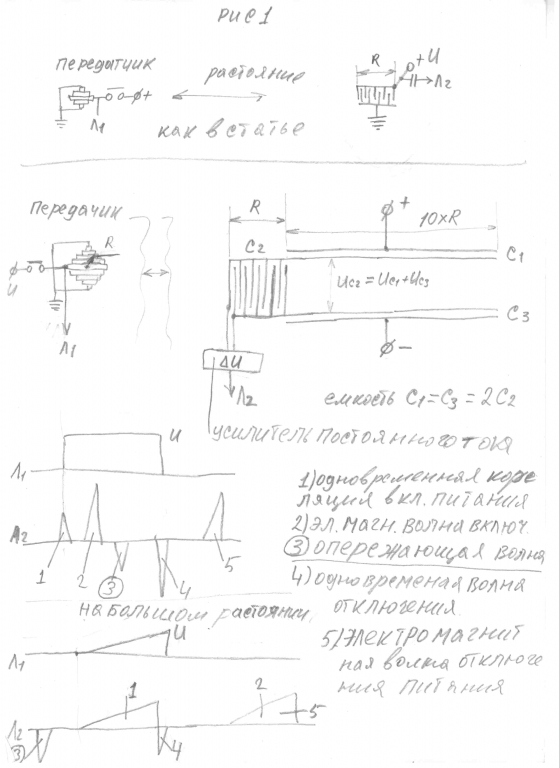 РИС 1
передатчик
растояние
R
+U
Л2
+
Л1
как в статье
передачик
R
10xR
+
R
C2
C1
U
Uc2 = Uc1+Uc3
C3
−
Л1
ΔU
Л2
емкость C1=C3=2C2
усилитель постоянного тока
U
Л1
Л2
1
2
3
4
5
1) одновременная корре
ляция вкл. питания
2) Эл. магн. волна включ.
3 опережающая волна
4) одновременая волна
отключения
5) электромагнит
ная волна отключе
ния питания
на большом растоянии,
U
Л1
1
2
Л2
3)
4
5